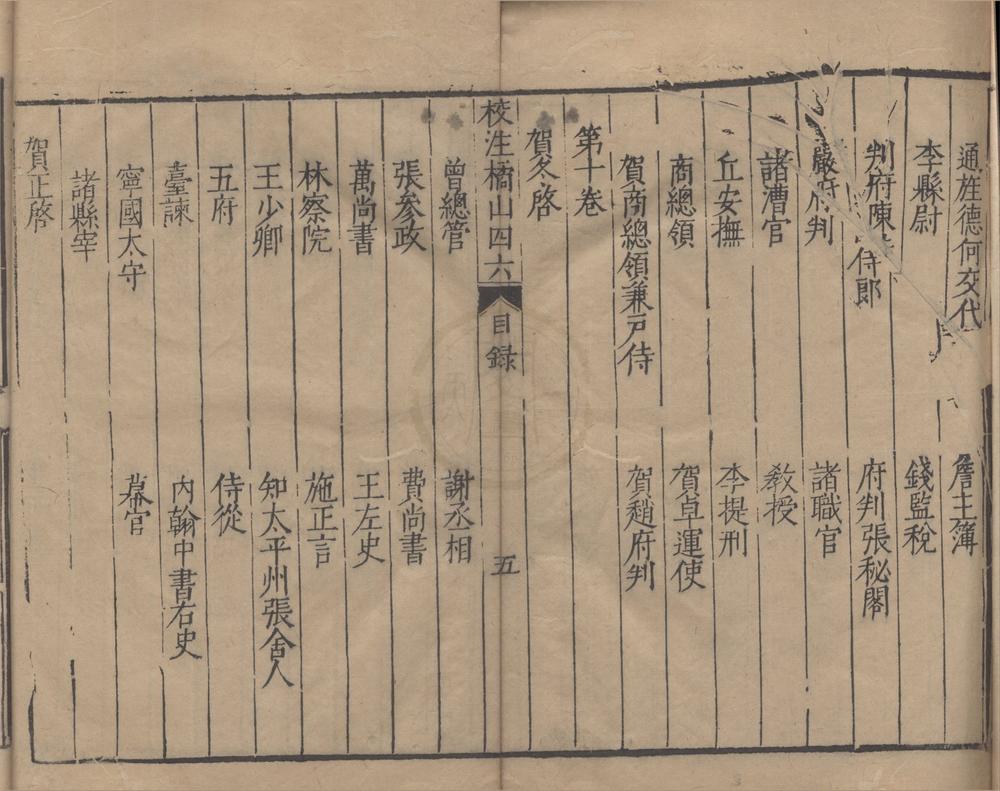 通旌德何交代　詹主簿
李縣尉　錢監稅
判府陳侍郎　府判張秘閣
嚴府判　諸職官
諸漕官　敎授
丘安撫　李提刑
商總領　賀卓運使
賀商總領兼戸侍　賀趙府判
第十卷
賀冬啓
校注橘山四六　目録　五
曾總管　謝丞相
張參政　費尚書
萬尚書　王左史
林察院　施正言
王少卿　知太平州張舍人
五府　侍從
臺諫　内翰中書右史
寧國太守　幕官
諸縣宰
賀正啓